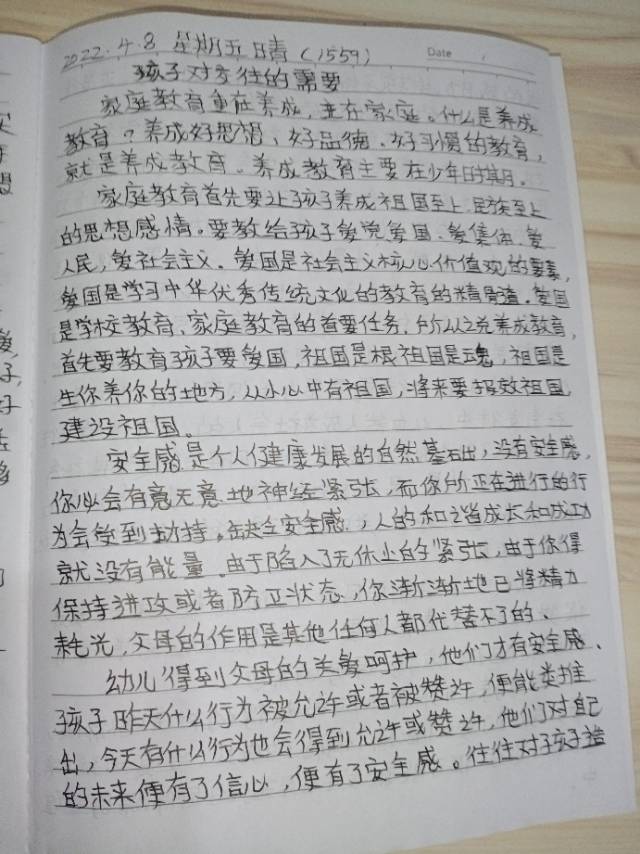 2022.4.8 星期五 晴 (1559) Date
孩子对交往的需要
家庭教育重在养成,主在家庭。什么是养成
教育?养成好思想、好品德、好习惯的教育,
就是养成教育。养成教育主要在少年时期。
家庭教育首先要让孩子养成祖国至上、民族至上
的思想感情。要教给孩子爱党爱国、爱集体、爱
人民,爱社会主义。爱国是社会主义核心价值观的要素,
爱国是学习中华优秀传统文化的教育的精骨道。爱国
是学校教育、家庭教育的首要任务,所以之说养成教育,
首先要教育孩子要爱国,祖国是根祖国是魂,祖国是
生你养你的地方,从小心中有祖国,将来要报效祖国,
建设祖国。
安全感是个人健康发展的自然基础,没有安全感,
你必会有意无意地神经紧张,而你所正在进行的行
为会受到劫持。缺乏安全感,人的和谐成长和成功
就没有能量。由于陷入了无休止的紧张,由于你得
保持进攻或者防卫状态,你渐渐地已将精力
耗光,父母的作用是其他任何人都代替不了的、
幼儿得到父母的关爱呵护,他们才有安全感、
孩子昨天什么行为被允许或者被赞许,便能类推
出,今天有什么行为也会得到允许或赞许,他们对自己
的未来便有了信心,便有了安全感。往往对子孩子造